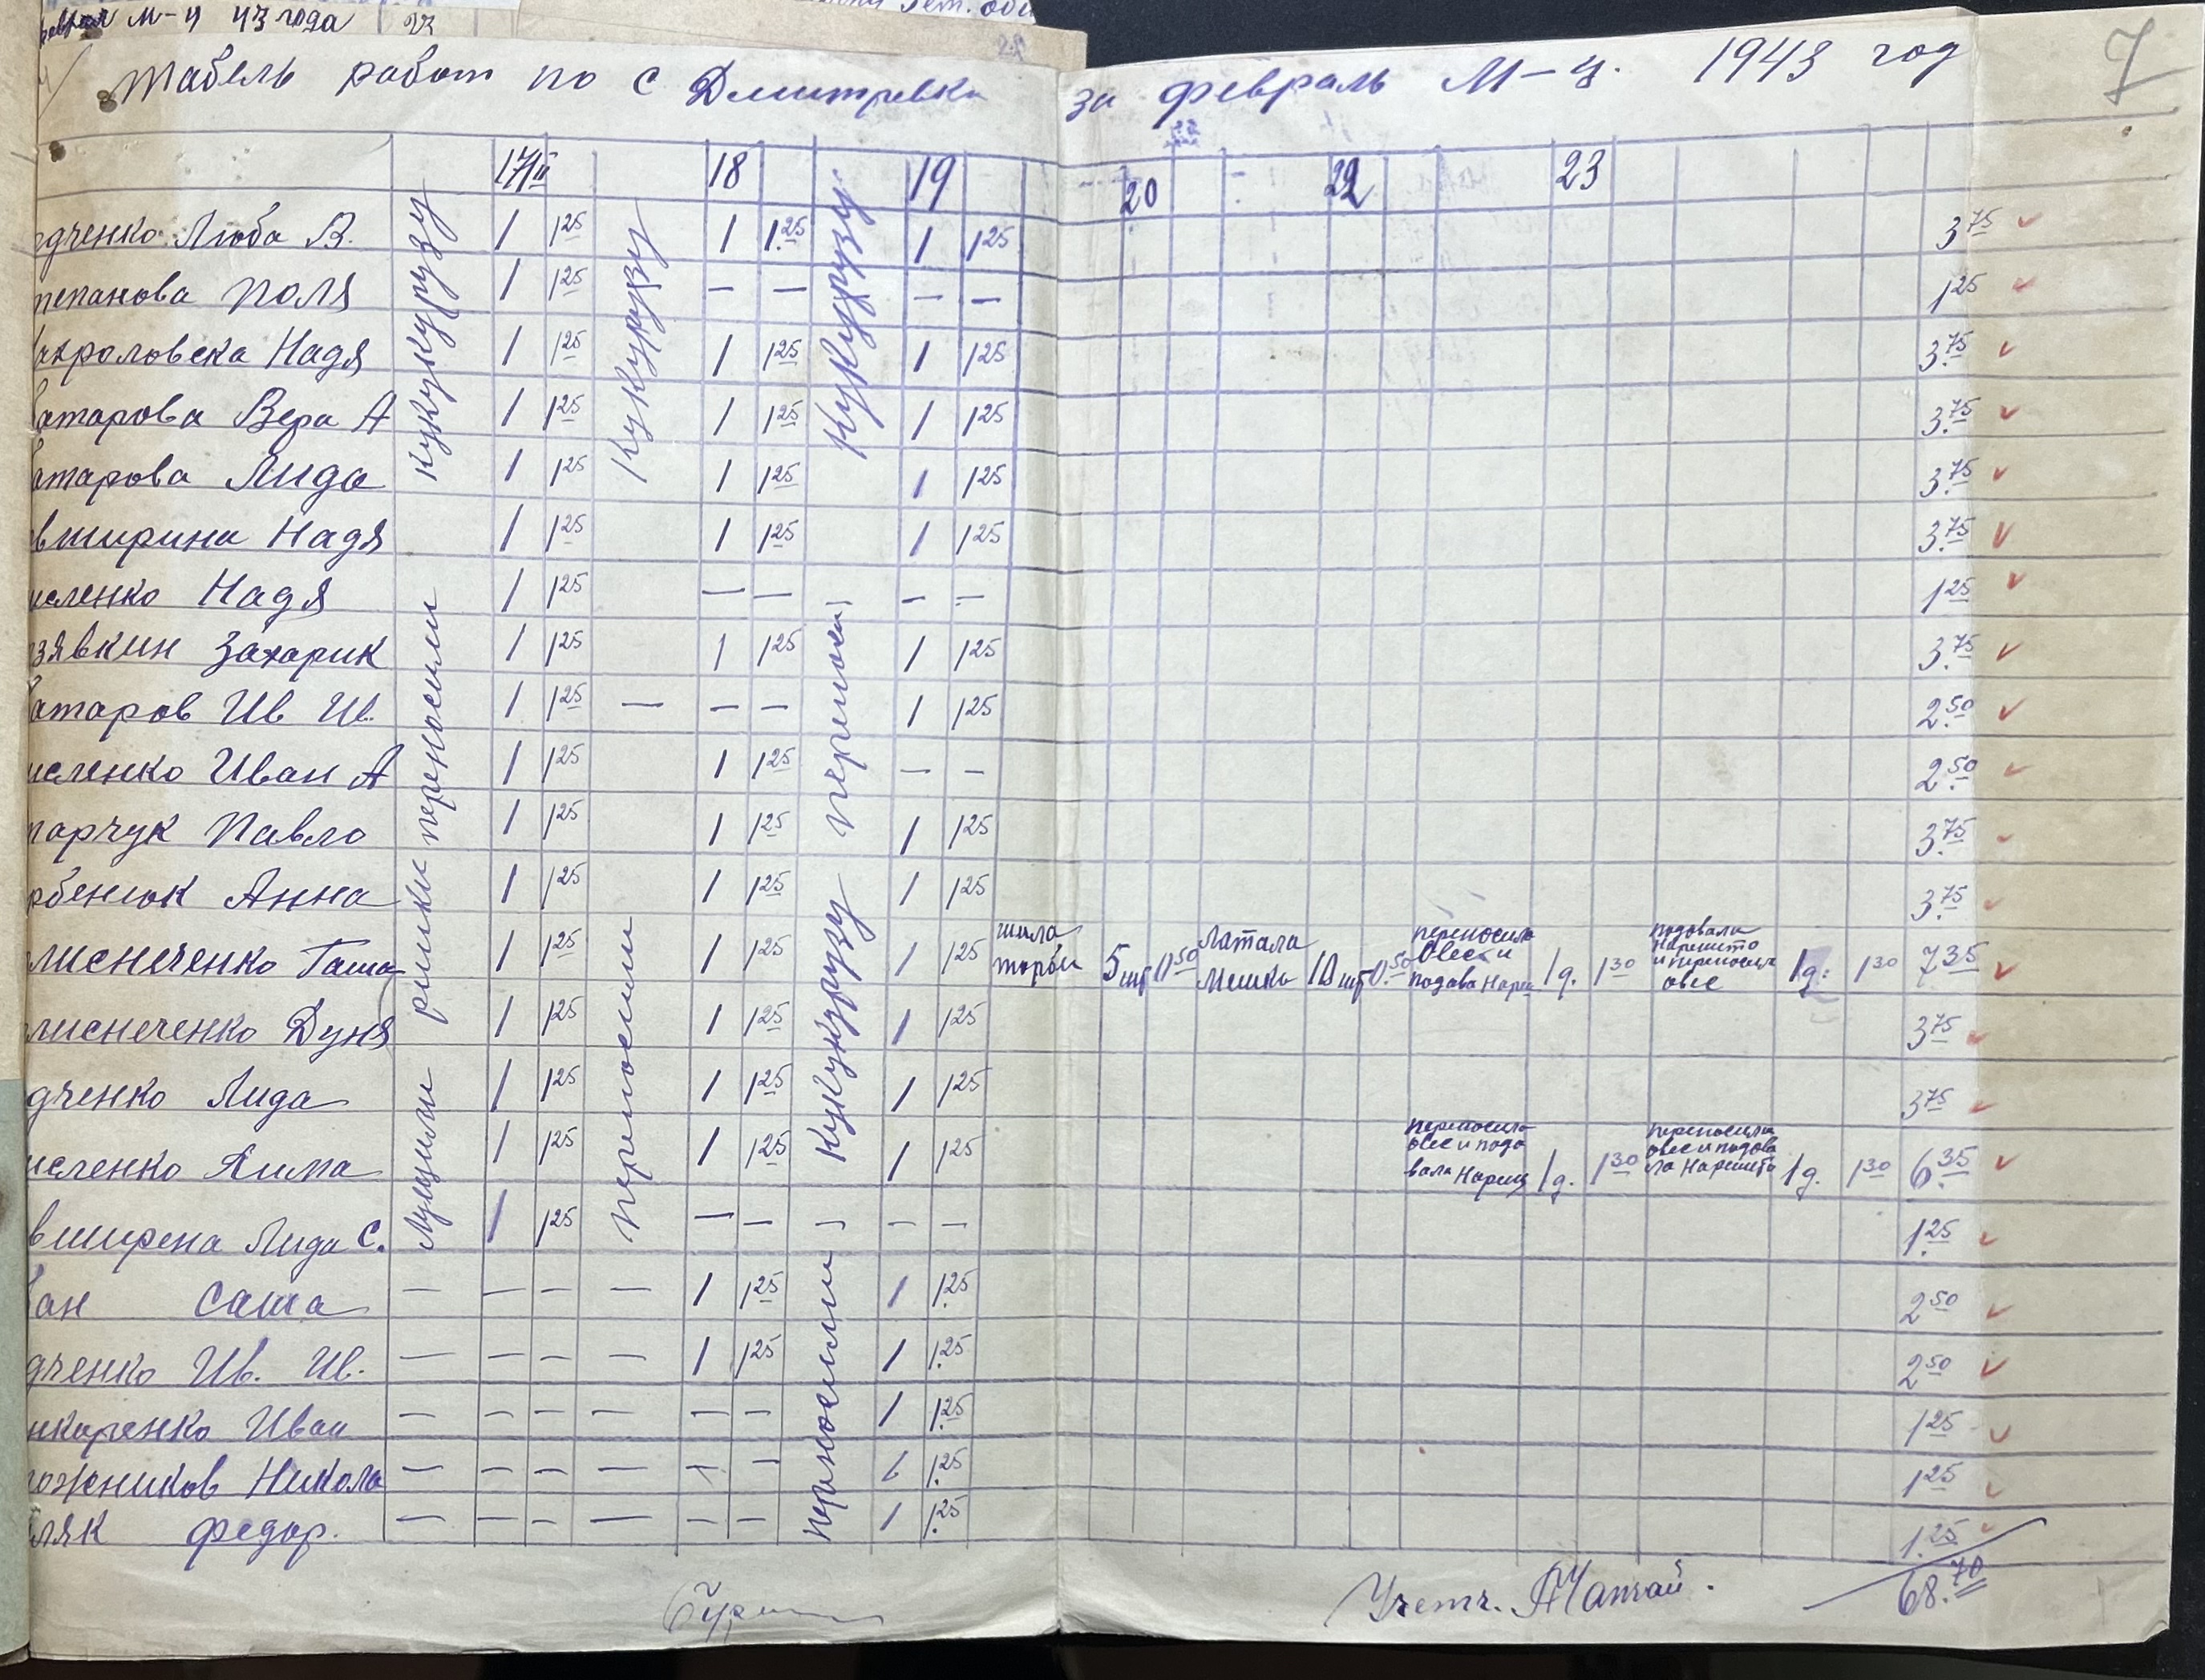 М-ц 43 года
Табель работ по с Дмитревка за февраль М-ц. 1943 год 7
17/II 18 19 20 22 23
дченко Люба В. 1 1 25 1 1.25 1 1 25 3 75
тепанова Поля 1 1 25 — — — — 1 25
Надя 1 1 25 1 1 25 1 1 25 3.75
атарова Вера А 1 1 25 1 1 25 1 1 25 3.75
атарова Лида 1 1 25 1 1 25 1 1 25 3.75
вширина Надя 1 1 25 1 1 25 1 1 25 3.75
исленко Надя 1 1 25 — — — — 1 25
зявкин Захарик 1 1 25 1 1 25 1 1 25 3.75
атаров Ив Ив. 1 1 25 — — — 1 1 25 2.50
исленко Иван А 1 1 25 1 1 25 — — 2.50
парчук Павло 1 1 25 1 1 25 1 1 25 3.75
рбенюк Анна 1 1 25 1 1 25 1 1 25 3.75
лиснеченко Гаша 1 1 25 1 1 25 1 1 25 шила торбы 5 шт 0 50 латала мешки 10 шт 0.50 переносила овес и подава Нареш 1 д. 1 30 подовала нарешито и переносила овес 1 д: 1 30 7 35
лиснеченко Дуня 1 1 25 1 1 25 1 1 25 3 75
дченко Лида 1 1 25 1 1 25 1 1 25 3 75
исленко Лима 1 1 25 1 1 25 1 1 25 переносила овес и подовала Нареш 1 д. 1 30 переносила овес и подовала Нарешито 1 д. 1 30 6.35
вширена Лида С. 1 1 25 — — — — — 1.25
ван Саша — — — — 1 1 25 1 1.25 2 50
дченко Ив. Ив. — — — — 1 1 25 1 1.25 2 50
нкаренко Иван — — — — — — 1 1.25 1 25
ожников Никола — — — — — — 1 1.25 1 25
ляк Федор. — — — — — — 1 1.25 1.25
68.70
Лущили
переносили кукурузу
переносили
кукурузу
кукурузу
кукурузу переносили
Учетч.